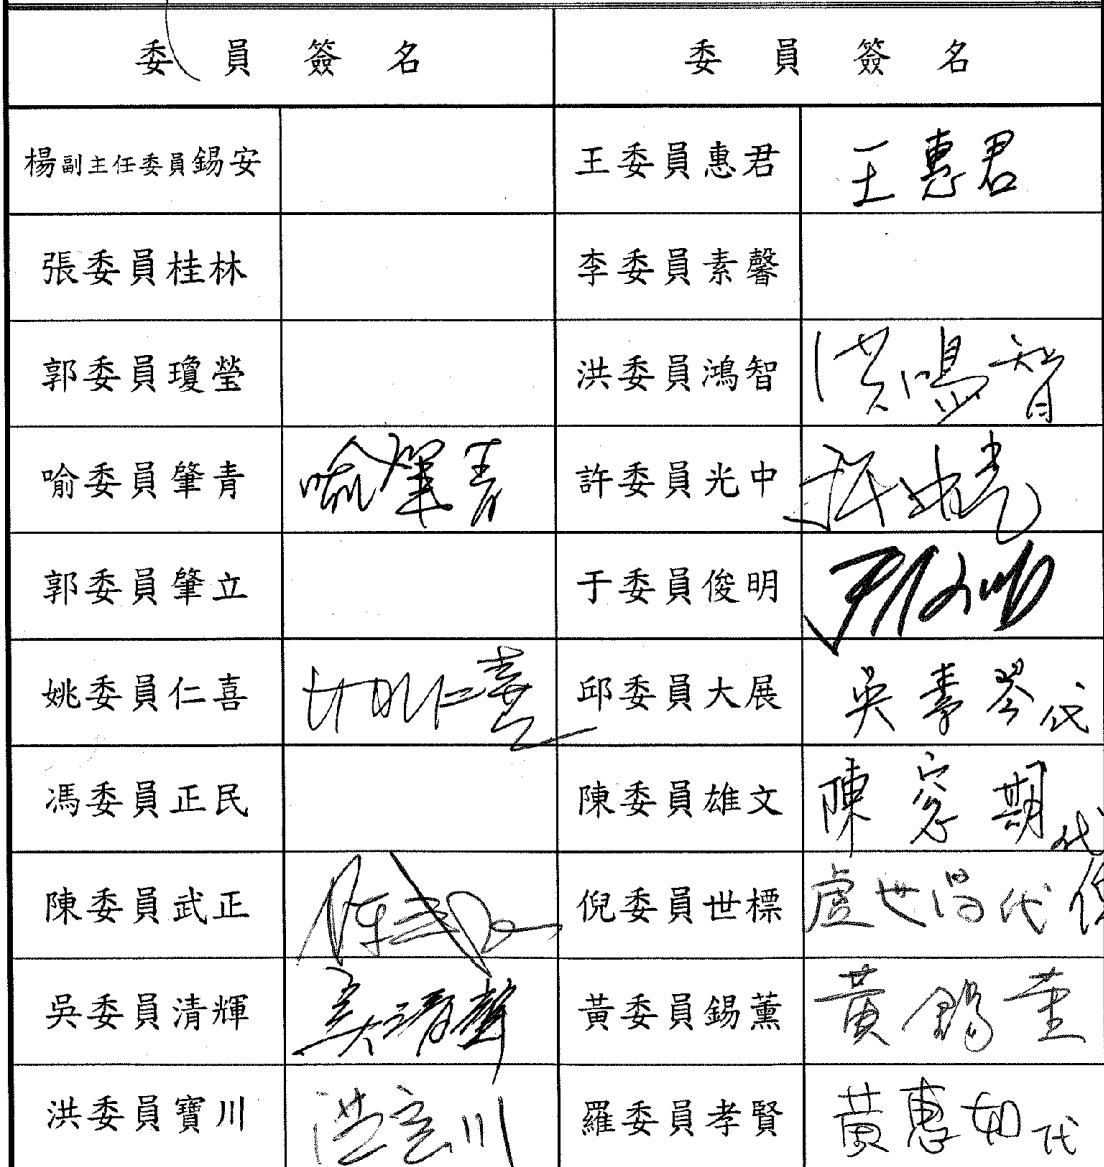 委員簽名 委員簽名
楊副主任委員錫安 王委員惠君 王惠君
張委員桂林 李委員素馨
郭委員瓊瑩 洪委員鴻智 洪鴻智
喻委員肇青 喻肇青 許委員光中
郭委員肇立 于委員俊明
姚委員仁喜 姚仁喜 邱委員大展 吳素岑代
馮委員正民 陳委員雄文 陳 期代
陳委員武正 陳武正 倪委員世標 盧世昌代
吳委員清輝 吳清輝 黃委員錫薰 黃錫薰
洪委員寶川 洪寶川 羅委員孝賢 黃惠如代